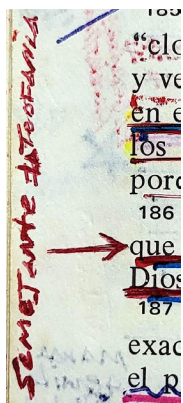 SEMEJANTE TEOFANIA
185
“clo
y ve
en e
los
porq
186
que
Dios
187
exac
el p